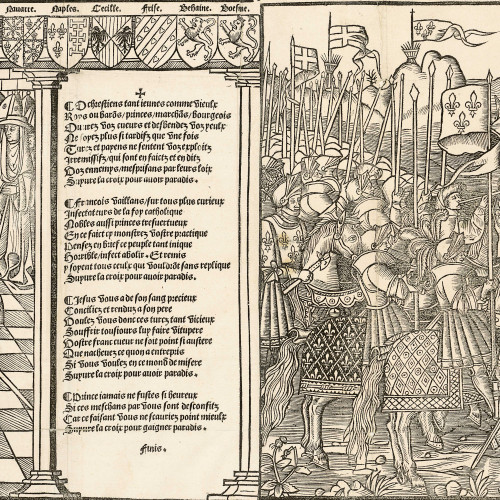 Navarre. Naples. Cecille. Frise. Behaine. Boesme.
O chrestiens tant ieunes comme vieulx
Roys ou barõs/princes/marchãs/bourgeois
Ouurez voz cueurs et desbendez voz yeulx
Ne soyez plus si tardifz que vne fois
Turcz et payens ne sentent voz exploitz
Irremissifz/qui font en faictz et en ditz
Voz ennemys/mesprisans par leurs loix
Suyure la croix pour auoir paradis.
Francois vaillans/sur tous plus curieux
Insectateurs de la foy catholique
Nobles aussi princes tresvertueux
En ce faict cy monstrez vostre practique
Pensez en brief ce peuple tant inique
Horrible/infect abolir. Et remis
y soyent tous ceulx qui vouldrõt sans replique
Suyure la croix pour auoir paradis.
Jesus vous a de son sang precieux
Conciliez et renduz a son pere
Voulez vous donc ces turcz tant vicieux
Souffrir tousiours luy faire vitupere
Vostre franc cueur ne soit point si austere
Que nacheuez ce quon a entrepris
Si vous voulez en ce mond de misere
Suyure la croix pour auoir paradis.
Prince iamais ne fustes si heureux
Si ces meschans par vous sont desconfitz
Car ce faisant vous ne scauriez point mieulx
Suyure la croix pour gaigner paradis.
Finis.